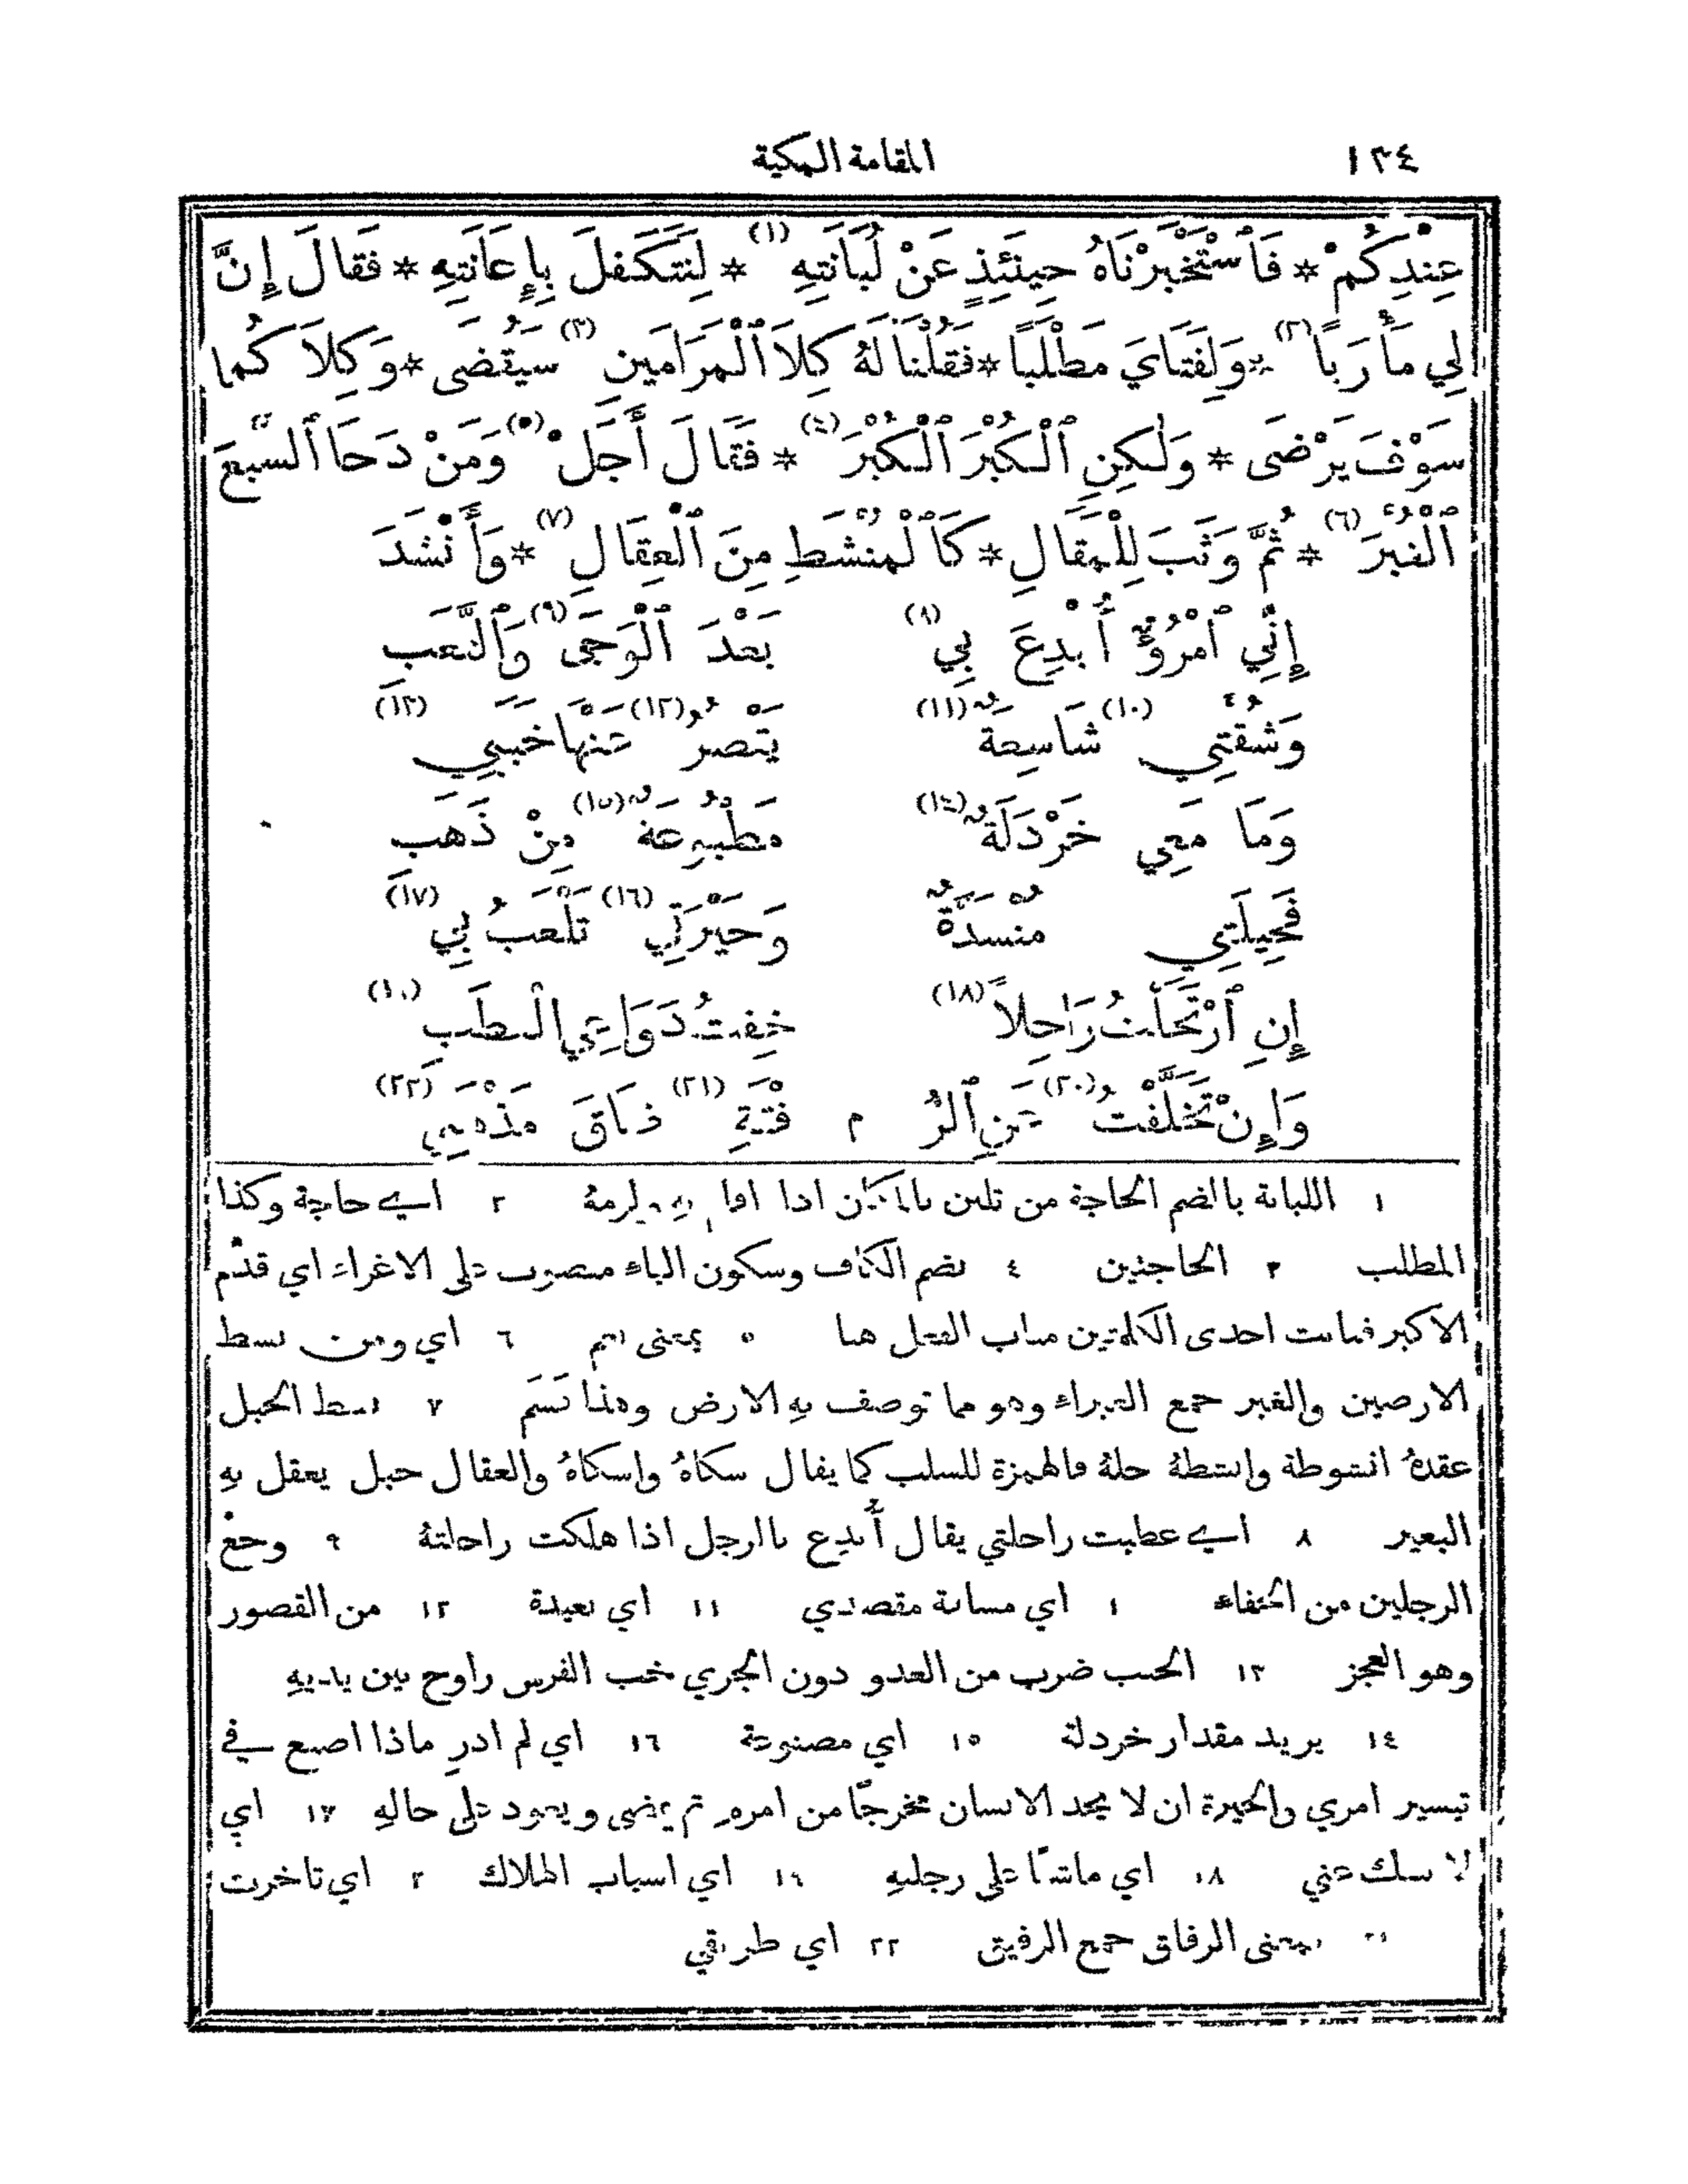 ١٣٤ المقامة المكية
عِنْدِكُمْ * فَٱسْتَخْبَرْنَاهُ حِينَئِذٍ عَنْ لُبَانَتِهِ (١) * لِنَتَكَفَّلَ بِإِعَانَتِهِ * فَقَالَ إِنَّ
لِي مَأْرَبًا (٢) * وَلِفَتَايَ مَطْلَبًا * فَقُلْنَا لَهُ كِلَا ٱلْمَرَامَيْنِ (٣) سَيُقْضَى * وَكِلَا كُمَا
سَوْفَ يَرْضَى * وَلٰكِنِ ٱلْكُبْرَ ٱلْكُبْرَ (٤) * فَقَالَ أَجَلْ (٥) وَمَنْ دَحَا ٱلسَّبْعَ
ٱلْغُبْرَ (٦) * ثُمَّ وَثَبَ لِلْمَقَالِ * كَٱلْمُنْشَطِ مِنَ ٱلْعِقَالِ (٧) * وَأَنْشَدَ
إِنِّي ٱمْرُؤٌ أُبْدِعَ بِي (٨) بَعْدَ ٱلْوَجَى (٩) وَٱلتَّعَبِ
وَشُقَّتِي (١٠) شَاسِعَةٌ (١١) يَقْصُرُ (١٢) عَنْهَا خَبَبِي (١٣)
وَمَا مَعِي خَرْدَلَةٌ (١٤) مَطْبُوعَةٌ (١٥) مِنْ ذَهَبِ
فَحِيلَتِي مُنْسَدَّةٌ وَحَيْرَتِي (١٦) تَلْعَبُ بِي (١٧)
إِنِ ٱرْتَحَلْتُ رَاجِلًا (١٨) خِفْتُ دَوَاعِي الْعَطَبِ (١٩)
وَإِنْ تَخَلَّفْتُ (٢٠) عَنِ ٱلرُّ م فْقَةِ (٢١) ضَاقَ مَذْهَبِي (٢٢)
١ اللبانة بالضم الحاجة من تلبن بالمكان اذا اقام به ولزمهُ ٢ اي حاجة وكذا
المطلب ٣ الحاجتين ٤ بضم الكاف وسكون الباء منصوب على الاغراء اي قدّم
الاكبر فنابت احدى الكلمتين مناب الفعل هنا ٥ بمعنى نعم ٦ اي ومن بسط
الارضين والغبر جمع الغبراء وهو مما توصف بهِ الارض وهذا قَسَم ٧ نشط الحبل
عقدهُ انشوطة وانشطهُ حلهُ فالهمزة للسلب كما يقال شكاهُ واشكاهُ والعقال حبل يعقل بهِ
البعير ٨ اي عطبت راحلتي يقال أُبدع بالرجل اذا هلكت راحلتهُ ٩ وجع
الرجلين من الحفاء ١٠ اي مسافة مقصدي ١١ اي بعيدة ١٢ من القصور
وهو العجز ١٣ الخبب ضرب من العدو دون الجري خب الفرس راوح بين يديهِ
١٤ يريد مقدار خردلة ١٥ اي مصنوعة ١٦ اي لم ادرِ ماذا اصنع في
تيسير امري والحيرة ان لا يجد الانسان مخرجًا من امرهِ ثم يمضي ويعود على حالهِ ١٧ اي
لا تنفك عني ١٨ اي ماشيًا على رجليهِ ١٩ اي اسباب الهلاك ٢٠ اي تاخرت
٢١ بمعنى الرفاق جمع الرفيق ٢٢ اي طريقي